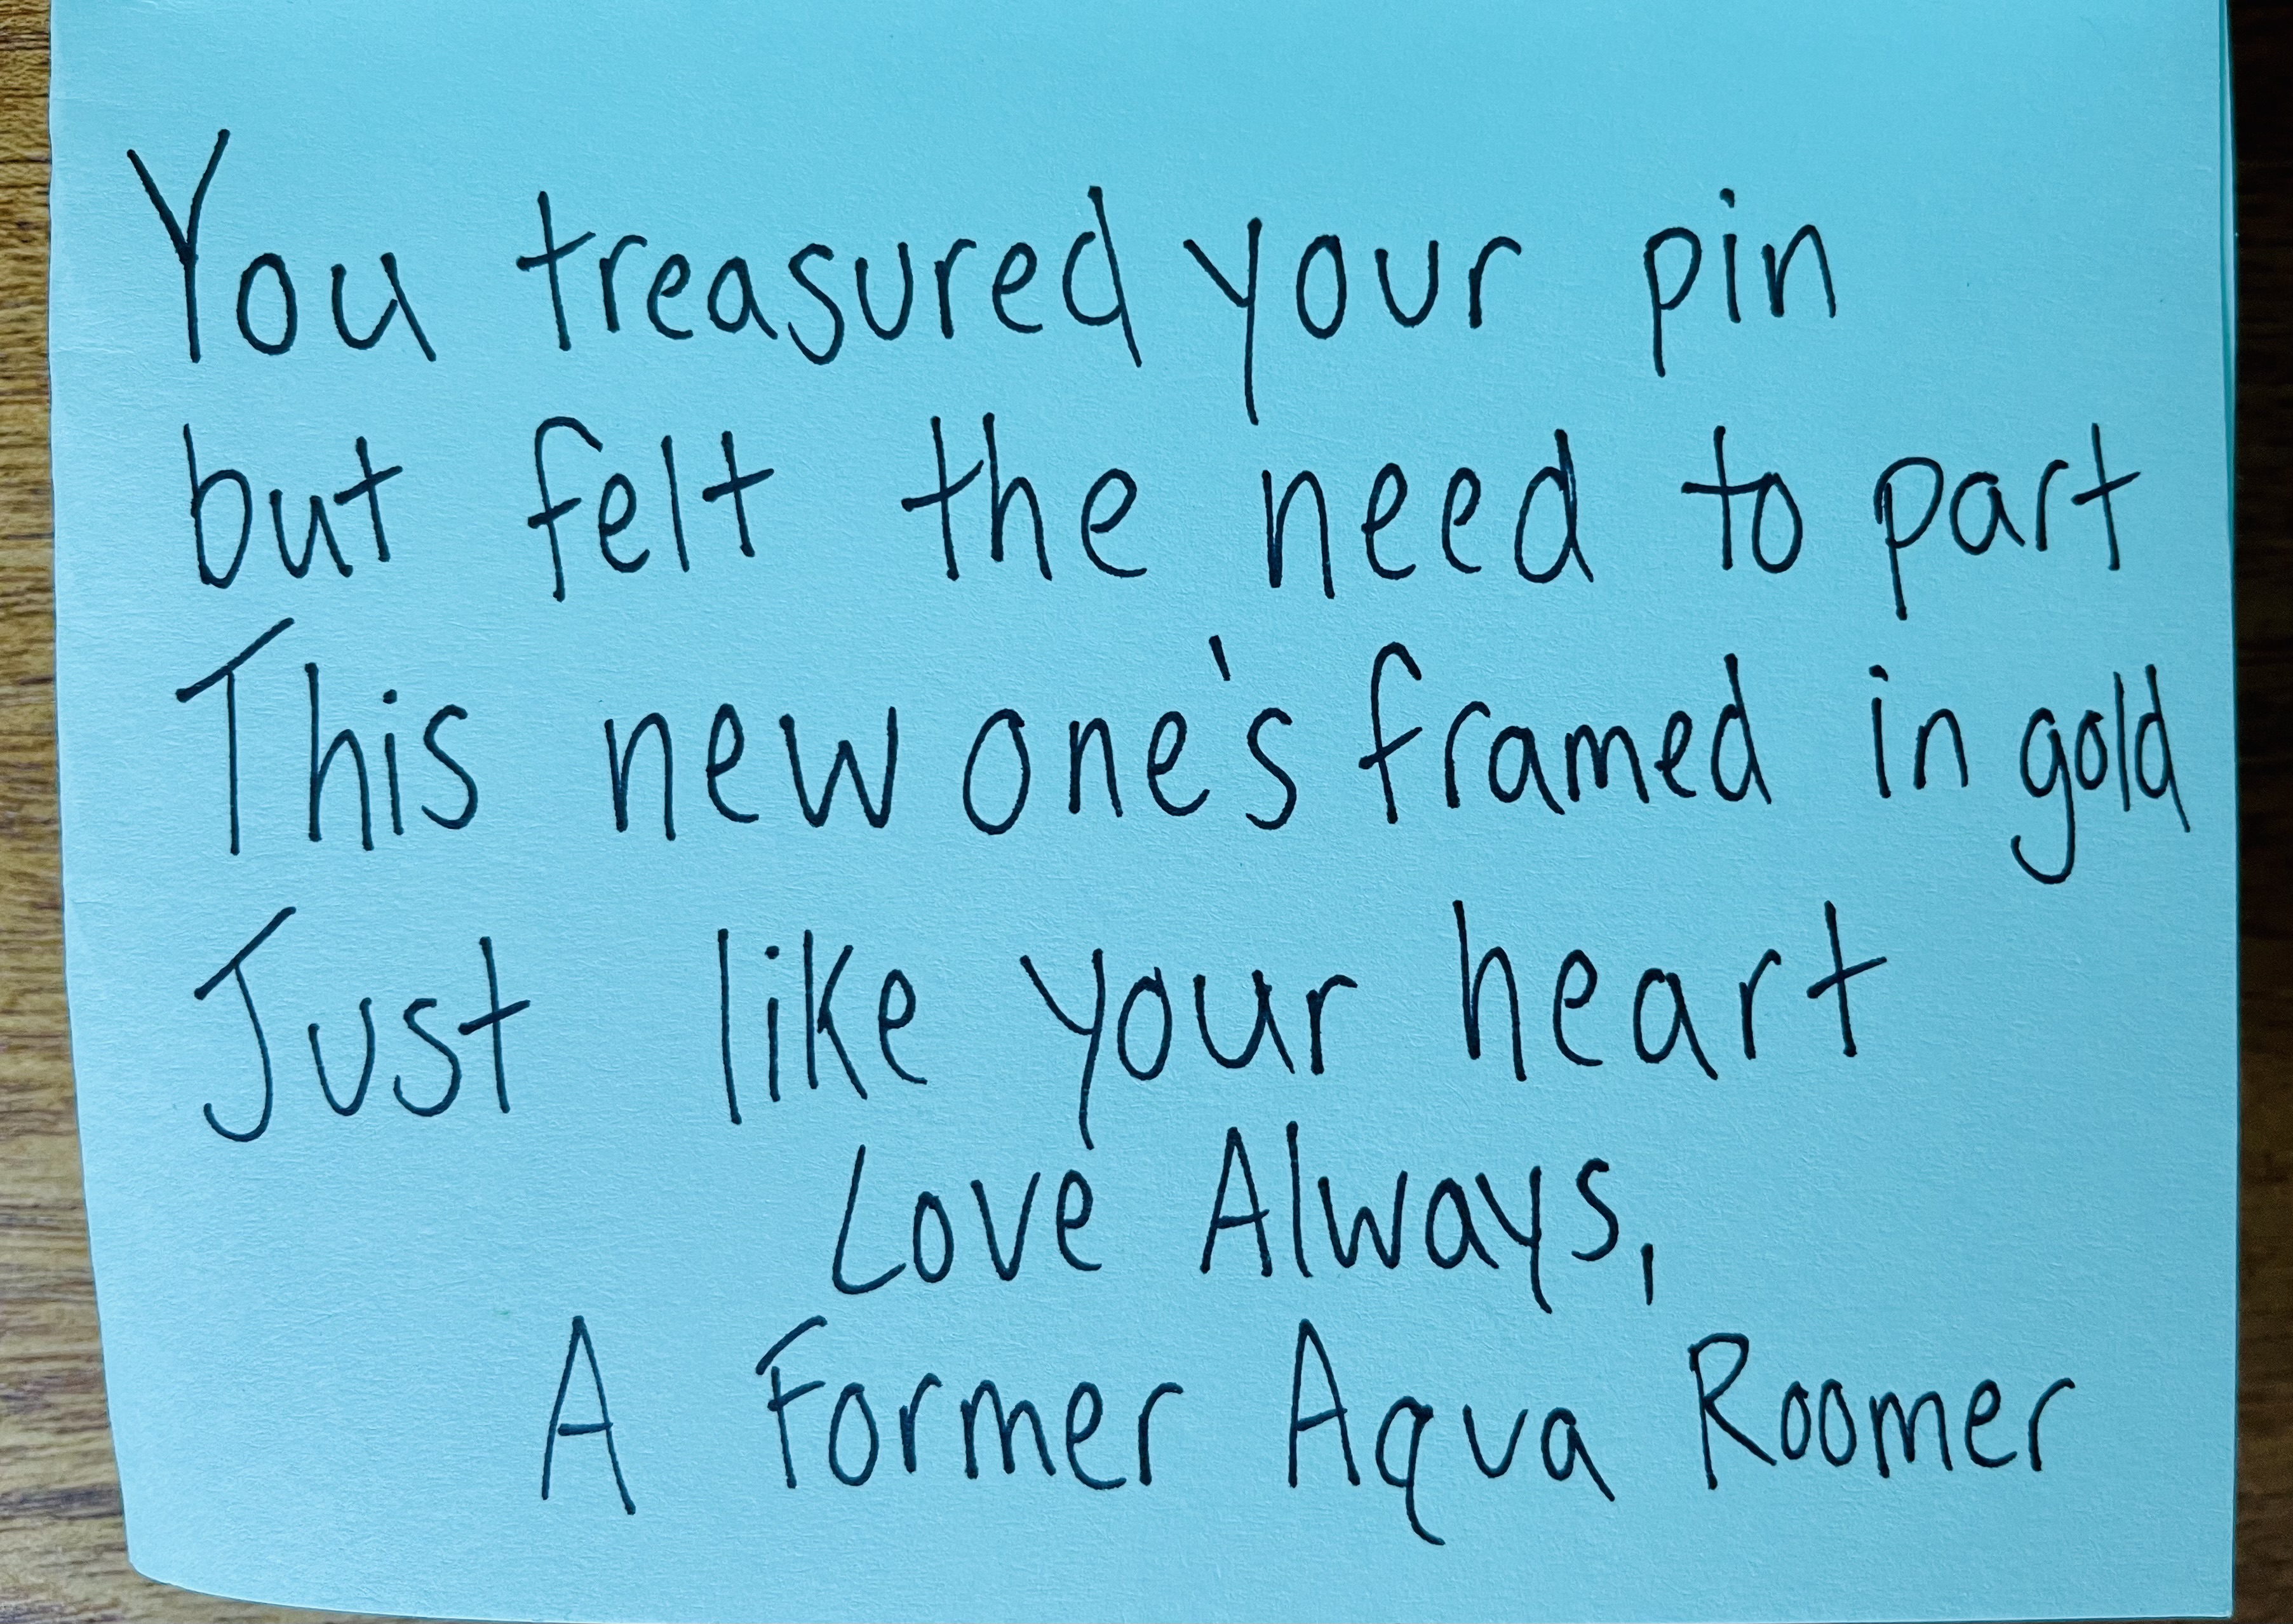 You treasured your pin
but felt the need to part
This new one's framed in gold
Just like your heart
Love Always,
A Former Aqua Roomer